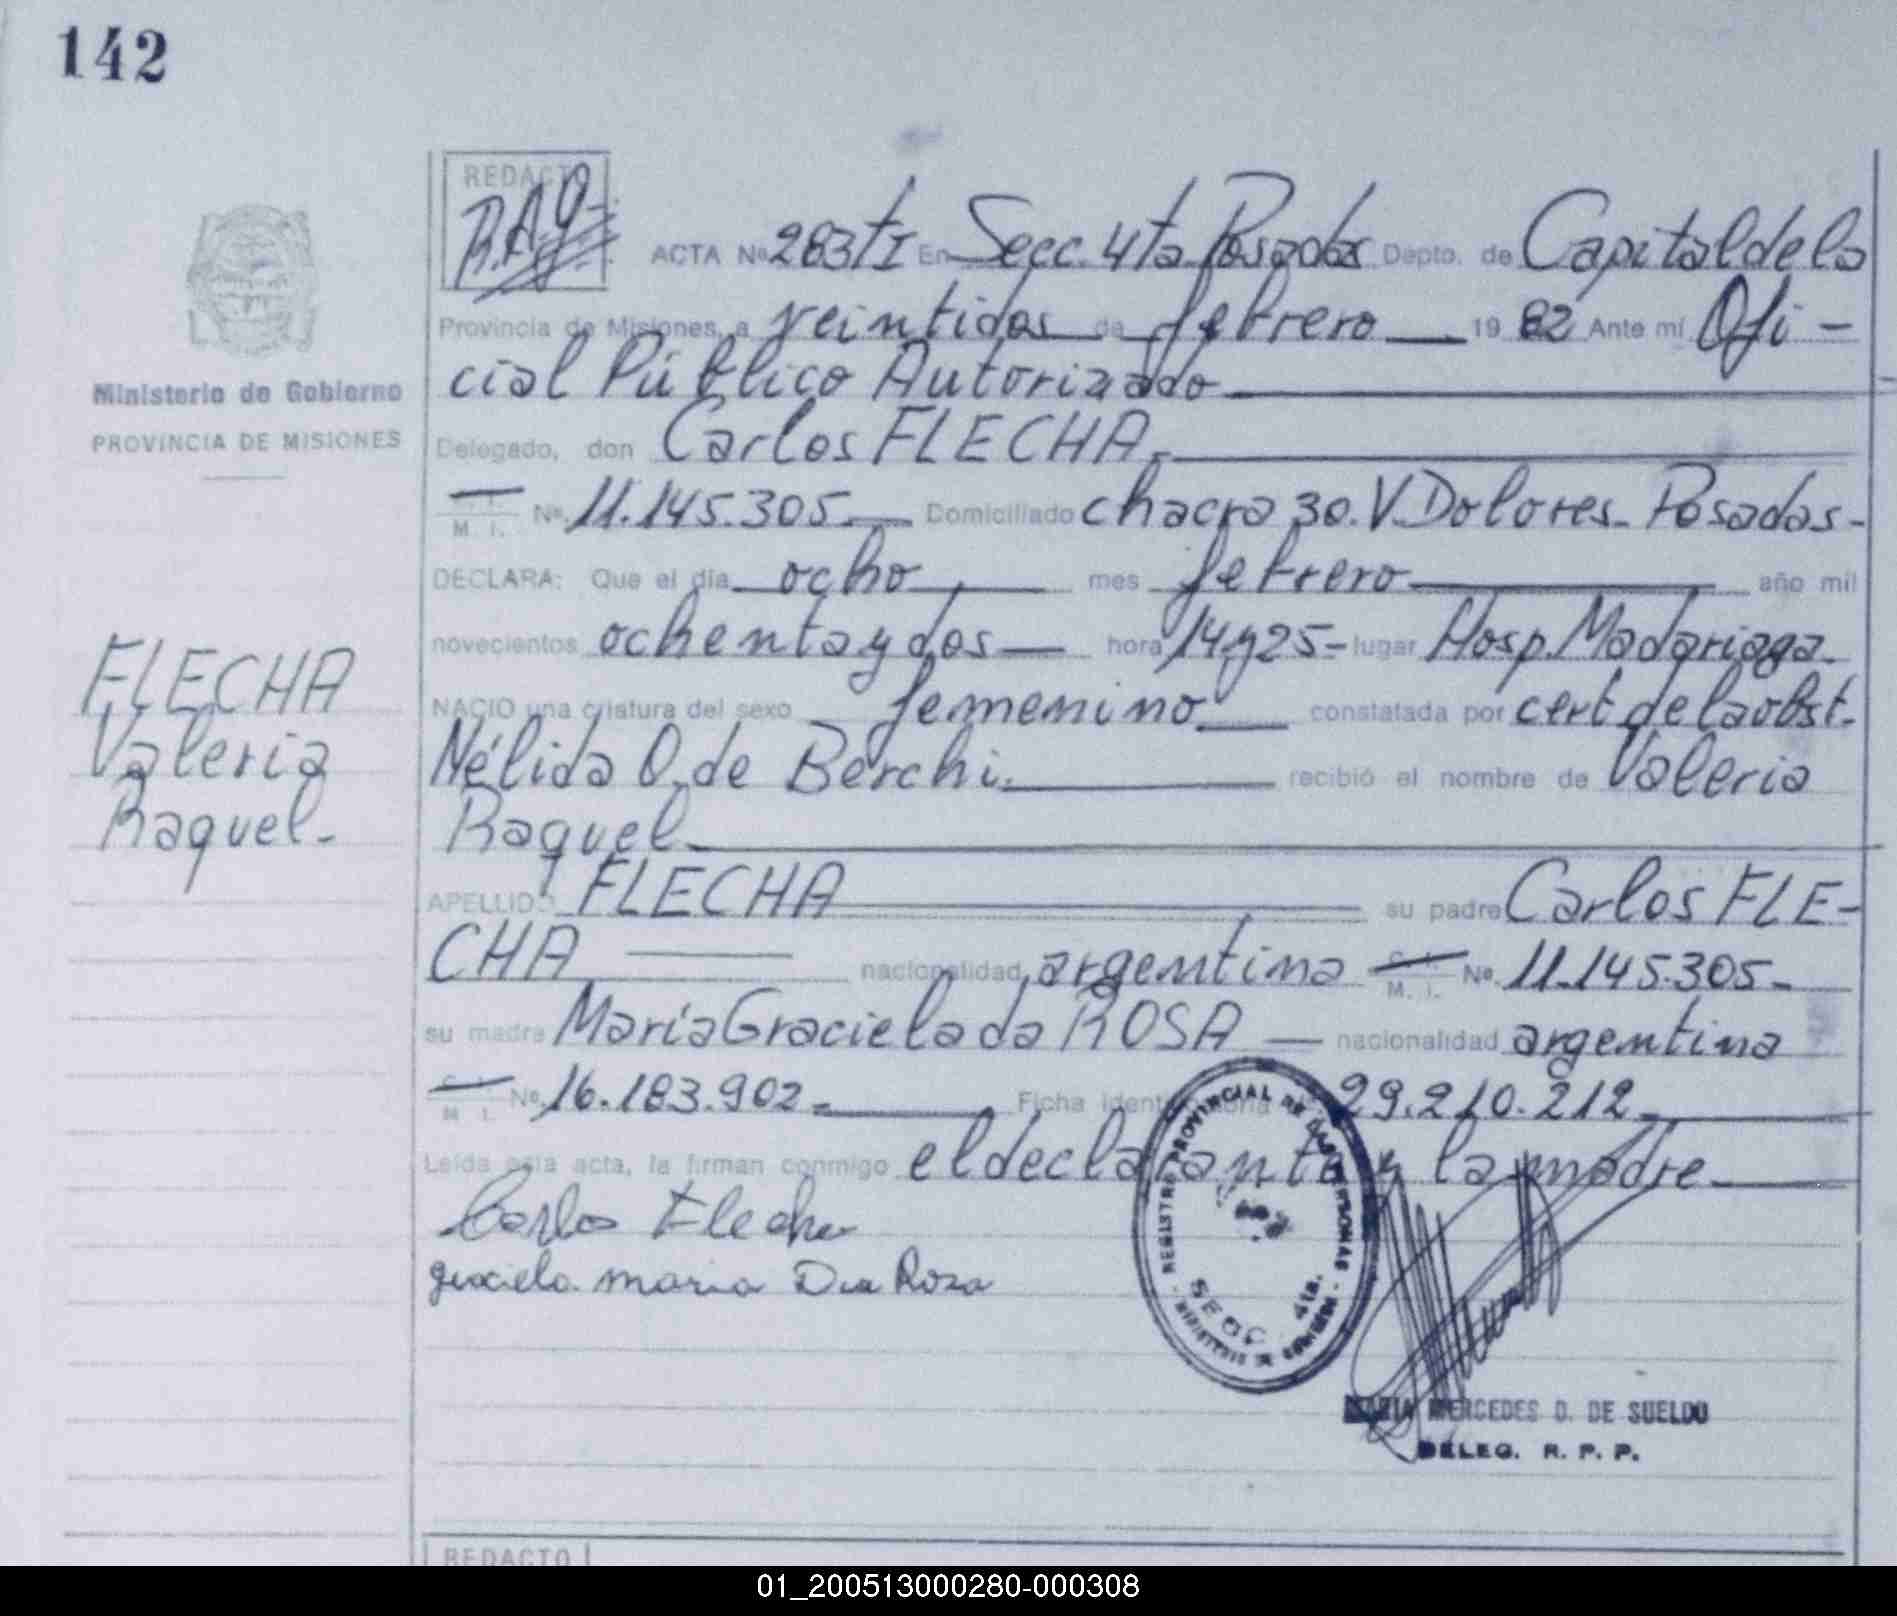 142
REDACTO
ACTA Nº 283 tI En Secc. 4ta Posadas Depto. de Capital de la
Provincia de Misiones, a veintidos de febrero 19 82 Ante mí Ofi-
cial Público Autorizado
Ministerio de Gobierno
PROVINCIA DE MISIONES
Delegado, don Carlos FLECHA.
M. I. Nº 11.145.305 Domiciliado chacra 30. V. Dolores. Posadas-
DECLARA: Que el día ocho mes febrero año mil
novecientos ochenta y dos hora 14 y 25- lugar Hosp. Madariaga.
NACIO una criatura del sexo femenino constatada por cert. de la obst.
Nélida O. de Berchi. recibió el nombre de Valeria
Raquel
FLECHA
Valeria
Raquel-
APELLIDO FLECHA su padre Carlos FLE-
CHA nacionalidad argentina M. I. Nº 11.145.305-
su madre María Graciela da ROSA nacionalidad argentina
M. I. Nº 16.183.902- Ficha 29.210.212
Leída esta acta, la firman conmigo el declarante y la madre
Carlos Flecha
graciela maria Da Rosa
REGISTRO PROVINCIAL DE LAS PERSONAS - MINISTERIO DE GOBIERNO -
SECC. 4ta.
MARIA MERCEDES D. DE SUELDO
DELEG. R. P. P.
REDACTO
01_200513000280-000308